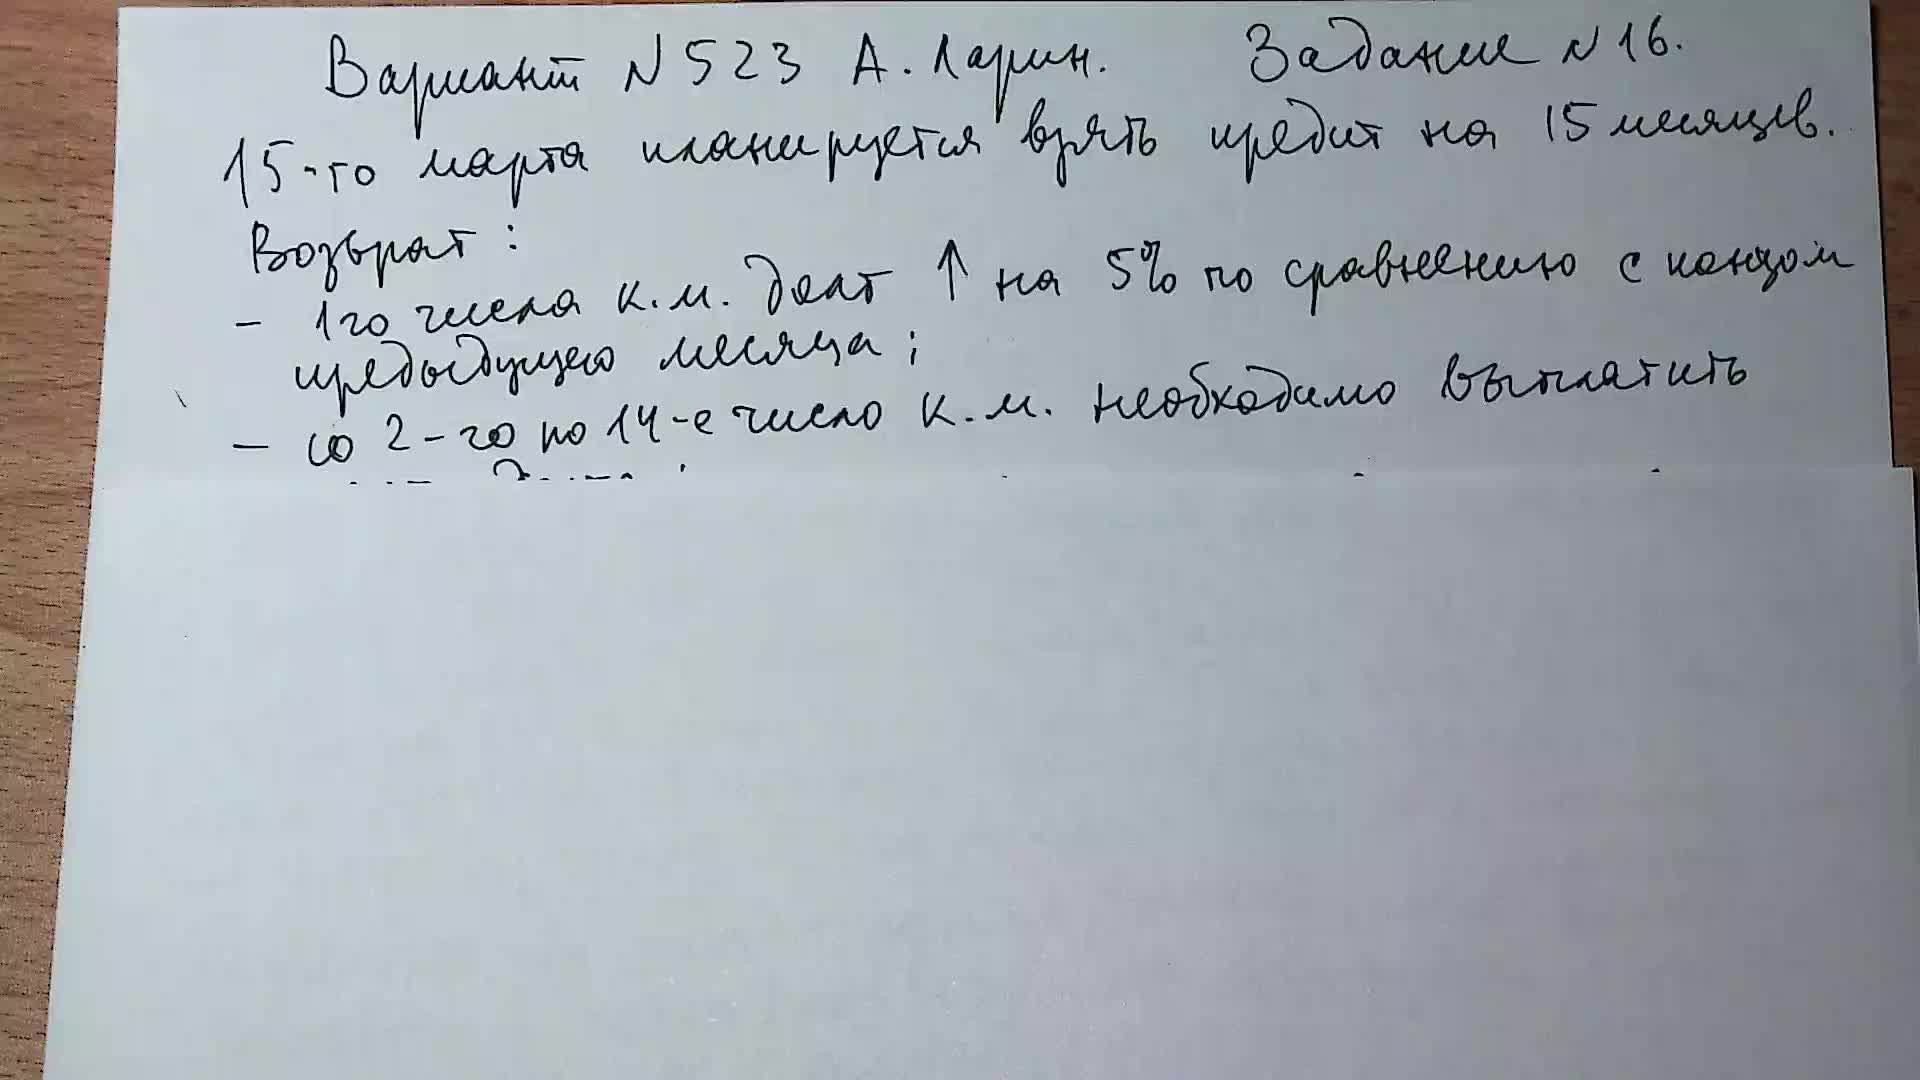 Вариант №523 А. Ларин. Задание №16.
15-го марта планируется взять кредит на 15 месяцев.
Возврат:
- 1го числа к.м. долг ↑ на 5% по сравнению с концом
предыдущего месяца;
- со 2-го по 14-е число к.м. необходимо выплатить